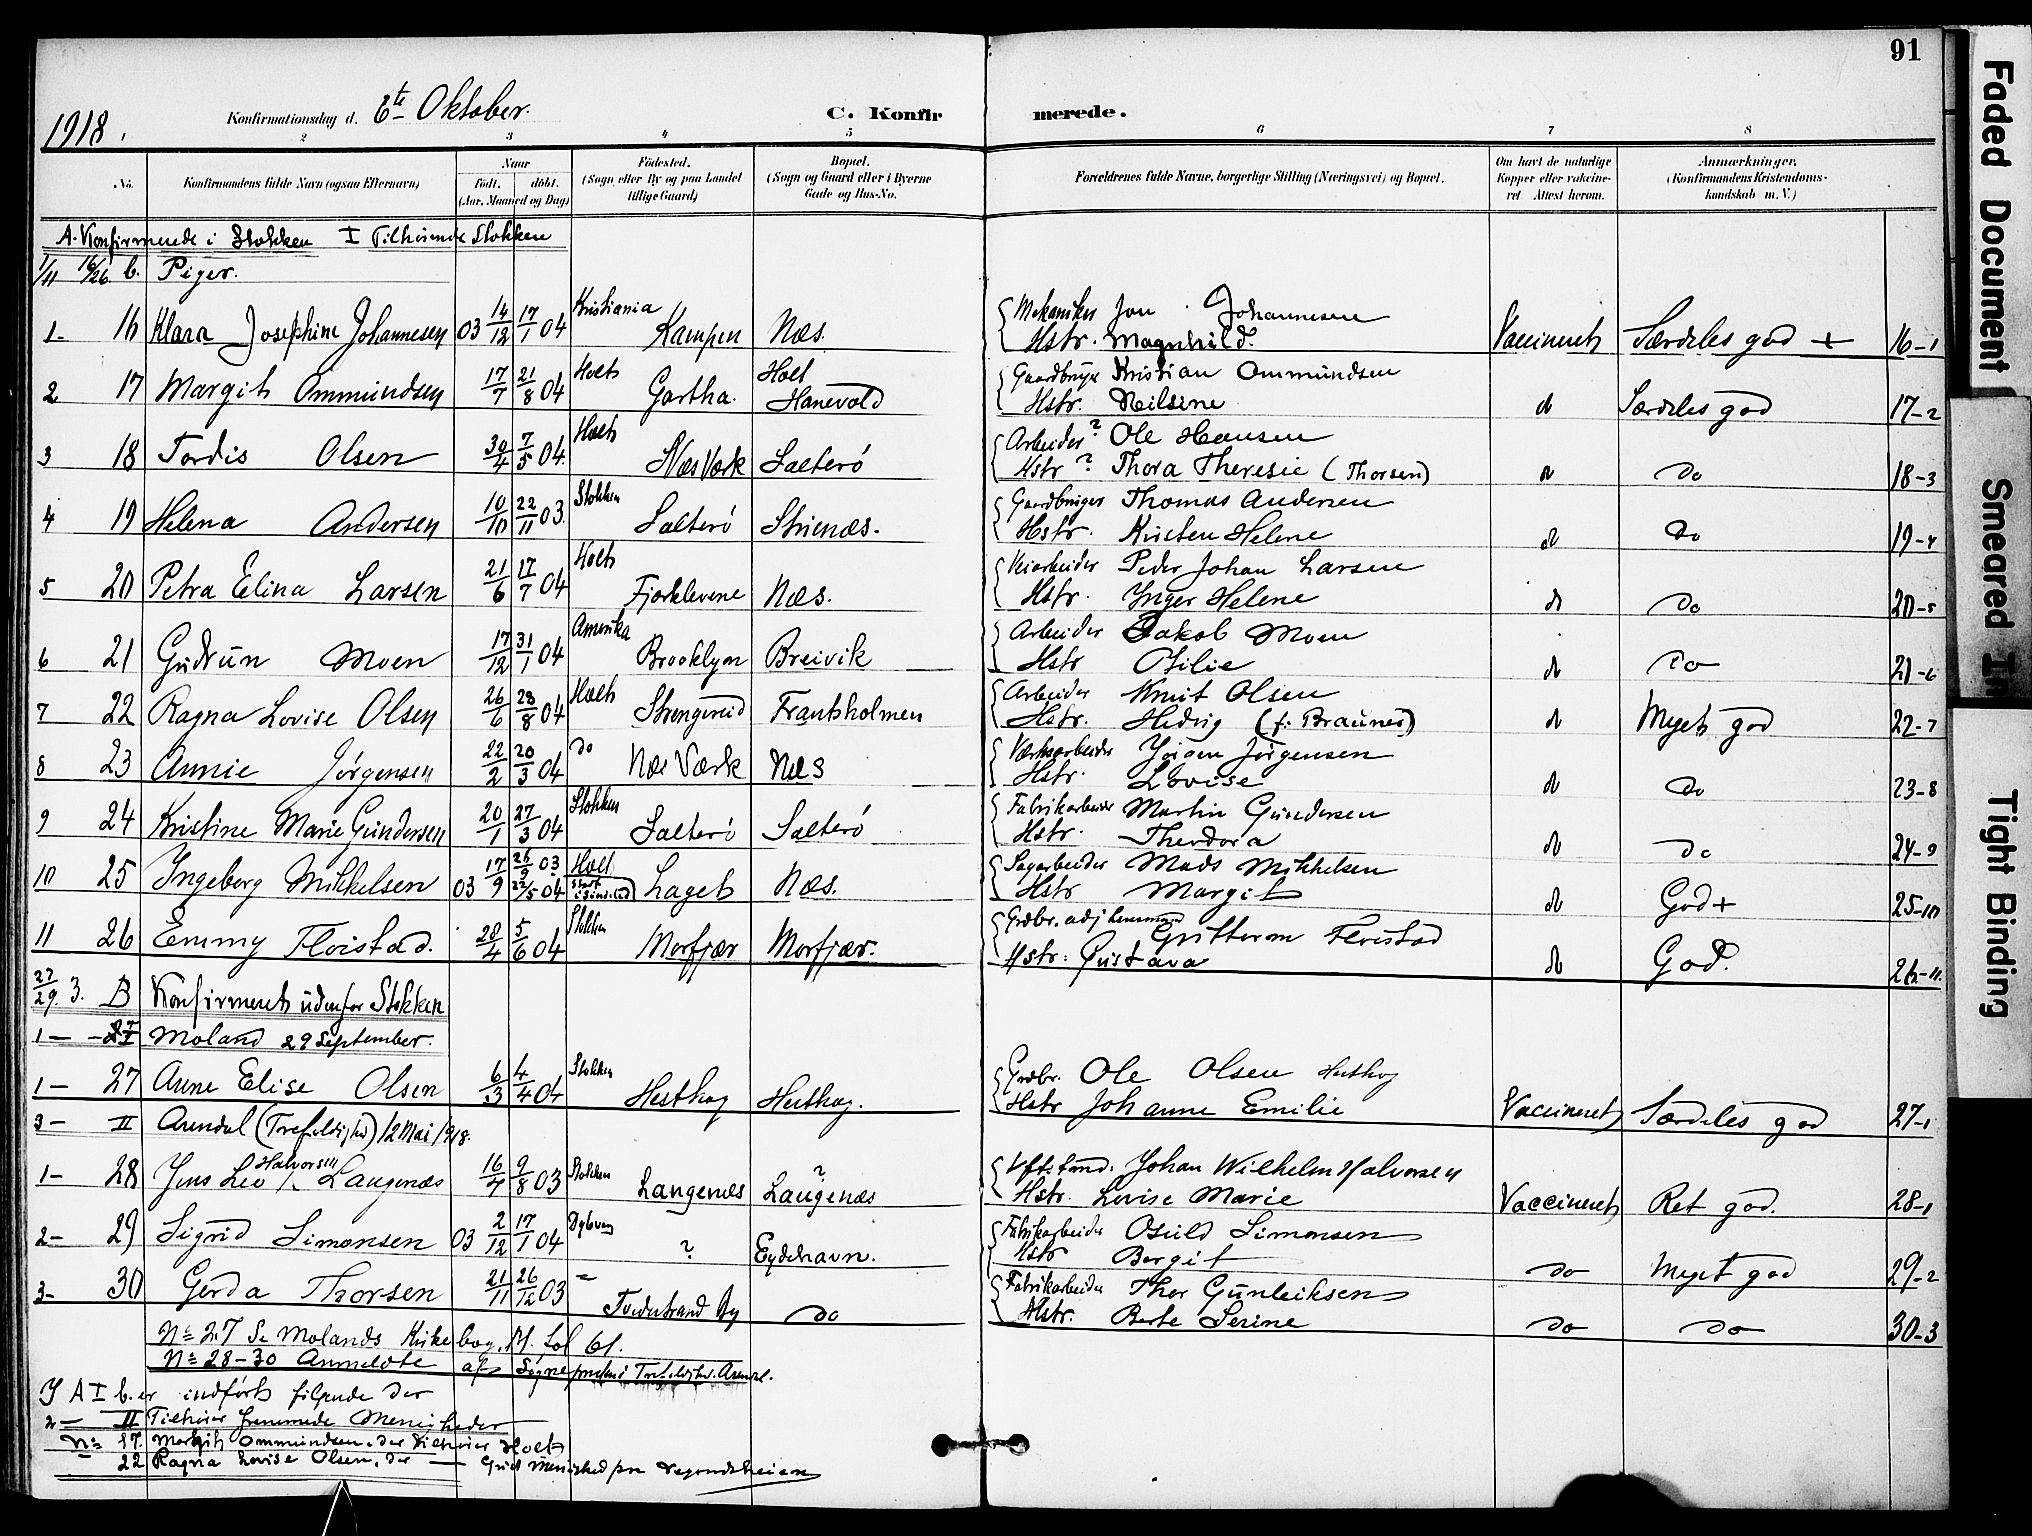 91
1918.
Konfirmationsdag d. 6te Oktober.
C. Konfirmerede.
2 3 4 5 6 7 8
No. Konfirmandens fulde Navn (ogsaa Efternavn) Naar født. døbt. (Aar, Maaned og Dag) Fødested. (Sogn eller By og paa Landet tillige Gaard) Bopæl. (Sogn og Gaard eller i Byerne Gade og Hus-No. Forældrenes fulde Navne, borgerlige Stilling (Næringsvei) og Bopæl. Om havt de naturlige Kopper eller vaccineret. Attest herom. Anmærkninger, (Konfirmandens Kristendomskundskab m. V.)
A. Konfirmerede i Stokken I Tilhørende Stokken
1/11 16/26 b. Piger.
1- 16 Klara Josephine Johannesen 03 14/12 17/1 04 Kristiania Kampen Næs. Mekaniker Jon Johannesen Hstr. Magnhild. Vaccineret Særdeles god + 16-1
2 17 Margit Ommundsen 17/7 21/8 04 Holt Gartha. Holt Hanevold Gaardbruger Kristian Ommundsen Hstr. Nilsine do Særdeles god 17-2
3 18 Tordis Olsen 30/4 7/5 04. Holt Næs Værk Salterö Arbeider ? Ole Hansen Hstr ? Thora Theresie (Thorsen) do Do 18-3
4 19 Helena Andersen 10/10 22/11 03. Stokken Salterö Strienæs. Gaardbruger Thomas Andersen Hstr. Kirsten Helene do Do 19-4
5 20 Petra Elina Larsen 21/6 17/7 04 Holt Fjorklevene Næs. Veiarbeider Peder Johan Larsen Hstr. Inger Helene do Do 20-5
6 21 Gudrun Moen 17/12 31/1 04 Amerika Brooklyn Breivik Arbeider Jakob Moen Hstr Otilie do Do 21-6
7 22 Ragna Lovise Olsen 26/6 28/8 04 Holt Strengereid Frantsholmen Arbeider Knut Olsen Hstr. Hedvig (f. Braunes) do Meget god 22-7
8 23 Annie Jörgensen 22/2 20/3 04 do Næs Værk Næs Værksarbeider Jörgen Jörgensen Hstr. Lovise do Do 23-8
9 24 Kristine Marie Gundersen 20/1 27/3 04 Stokken Salterö Salterö Fabrikarbeider Martin Gundersen Hstr. Theodora do Do 24-9
10 25 Ingeborg Mikkelsen 03 17/9 26/9 03 22/5 04 Holt Laget Næs. Sagarbeider Mads Mikkelsen Hstr Margit do God + 25-10
11 26 Emmy Flöistad. 28/4 5/6 04 Stokken Morfjær Morfjær. Grdbr. adj lensmand Guttorm Flöistad Hstr: Gustava do God. 26-11.
27/29. 3. B Konfirmerets udenfor Stokken
1- I Moland 29 September.
1- 27 Anne Elise Olsen 6/3 4/4 04 Stokken Hesthag Hesthag. Grdbr. Ole Olsen Hesthag Hstr Johanne Emilie Vaccineret Særdeles god 27-1
3- II Arendal (Trefoldighed) 12 Mai 1918.
1- 28 Jens Leo Halvorsen Langenæs 16/7 9/8 03 Stokken Langenæs ? Langenæs Johan Wilhelm Halvorsen Hstr. Lovise Marie Vaccineret Ret god. 28-1
2- 29 Sigrid Simonsen 03 2/12 17/1 04 Dybvaag ? Eydehavn. Fabrikarbeider Osuld Simonsen Hstr Bergit Do Meget god 29-2
3- 30 Gerda Thorsen 21/11 26/12 03 - Tvedestrand By Do Fabrikarbeider Thor Gunleiksen Hstr. Berte Serine Do Do 30-3
No 27 Se Molands Kirkebog, M. Fol 61.
No 28-30 Anmeldte af Sognepresten i Trefoldighed. Arendal.
I A I b. er indförts fölgende der
2- II Tilhörer fremmede Menigheder
No 17. Margit Ommundsen, der tilhörer Holt
- 22 Ragna Lovise Olsen, der —
Faded Document
Smeared In
Tight Binding